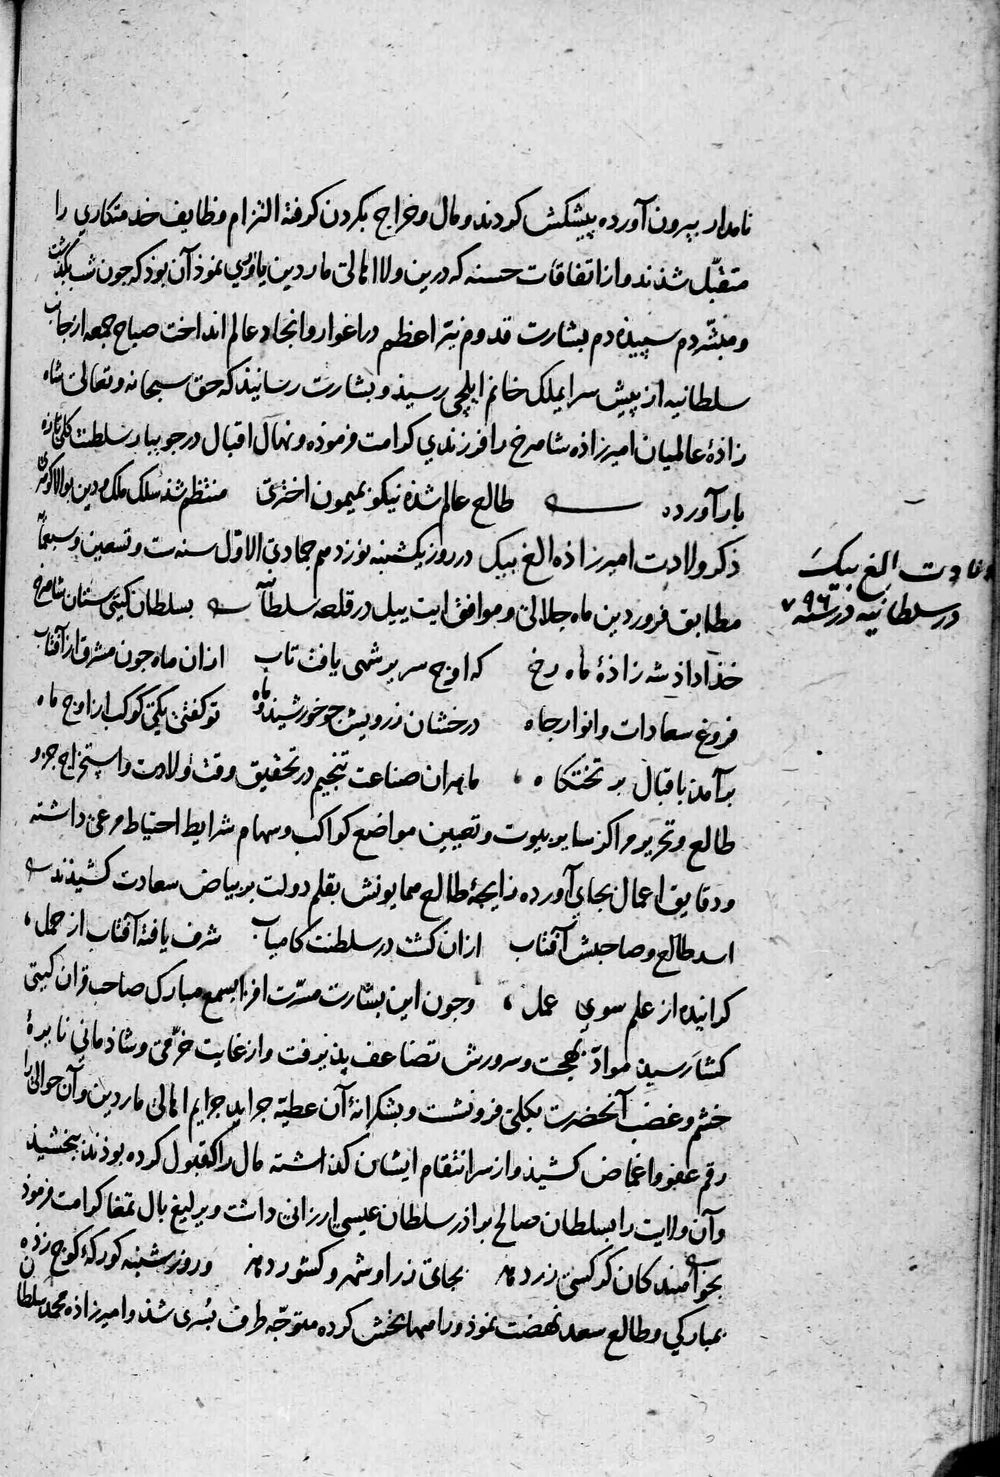 نامدار بیرون آورده پیشکش کردند و مال و خراج بکردن کرفته التزام وظایف خدمتکاری را
متقبّل شذند و از اتفاقات حسنه که درین ولا اهالی ماردین را یاوری نموذ آن بوذ که جون شب بکذشت
و مبشّر دم سپیذه دم بشارت قدوم نیّر اعظم در اغوار و انجاد عالم انداخت صباح جمعه از جانب
سلطانیه از پیش سرایملک خانم ایلچی رسیذ و بشارت رسانیذ که حق سبحانه و تعالی شاه
زاذهٔ عالمیان امیرزاذه شاهرخ را فرزندی کرامت فرموذه و نهال اقبال در جویبار سلطنت کلی تازه
بار آورده طالع عالم شذه نیکو بمیمون اختری منتظم شذ سلک ملک و دین بوالا کوهری
ذکر ولادت امیرزاذه الغ بیک در روز یکشنبه نوزدهم جمادی الاوّل سنه ست و تسعین و سبعمائه
مطابق فروردین ماه جلالی و موافق ایت ییل در قلعه سلطانیّه بسلطان کیتی ستان شاهرخ
خذا داذ شه زاذهٔ ماه رخ که اوج سریر شهی یافت تاب ازان ماه جون مشرق از آفتاب
فروغ سعادات و انوار جاه درخشان ز رویش جو خورشید و ماه تو کفتی یکی کوکب از اوج ماه
برآمذ باقبال بر تختکاه ماهران صناعت تنجیم در تحقیق وقت ولادت و استخراج جزو
طالع و تحریر مراکز سایر بیوت و تعیین مواضع کواکب و سهام شرایط احتیاط مرعی داشته
و دقایق اعمال بجای آورده زایجهٔ طالع همایونش بقلم دولت بر بیاض سعادت کشیذند
اسد طالع و صاحبش آفتاب ازان کشت در سلطنت کامیاب شرف یافته آفتاب از حمل
کراینده از علم سوی عمل وجون این بشارت مسرّت افزا بسمع مبارک صاحب قران کیتی
کشا رسیذ موادّ بهجت و سرورش تضاعف پذیرفت و از غایت خرّمی و شاذمانی نایرهٔ
خشم و غضب آنحضرت بکلی فرونشست و بشکرانهٔ آن عطیّه جراید جرایم اهالی ماردین و آن حوالی را
رقم عفو و اغماض کشیذ و از سر انتقام ایشان کذاشته مال را که قبول کرده بوذند ببخشیذ
و آن ولایت را بسلطان صالح براذر سلطان عیسی ارزانی داشت و یرلیغ بال تمغا کرامت فرموذ
بخواهندکان کر کسی زر دهد بجای زر او شهر و کشور دهد و روز شنبه کورکهٔ کوج زده
بمبارکی و طالع سعد نهضت نموذ و رامها بخش کرده متوجّه طرف بُسری شذ و امیرزاذه محمد سلطان
ولادت الغ بیک
در سلطانیه در سنه ۷۹۶